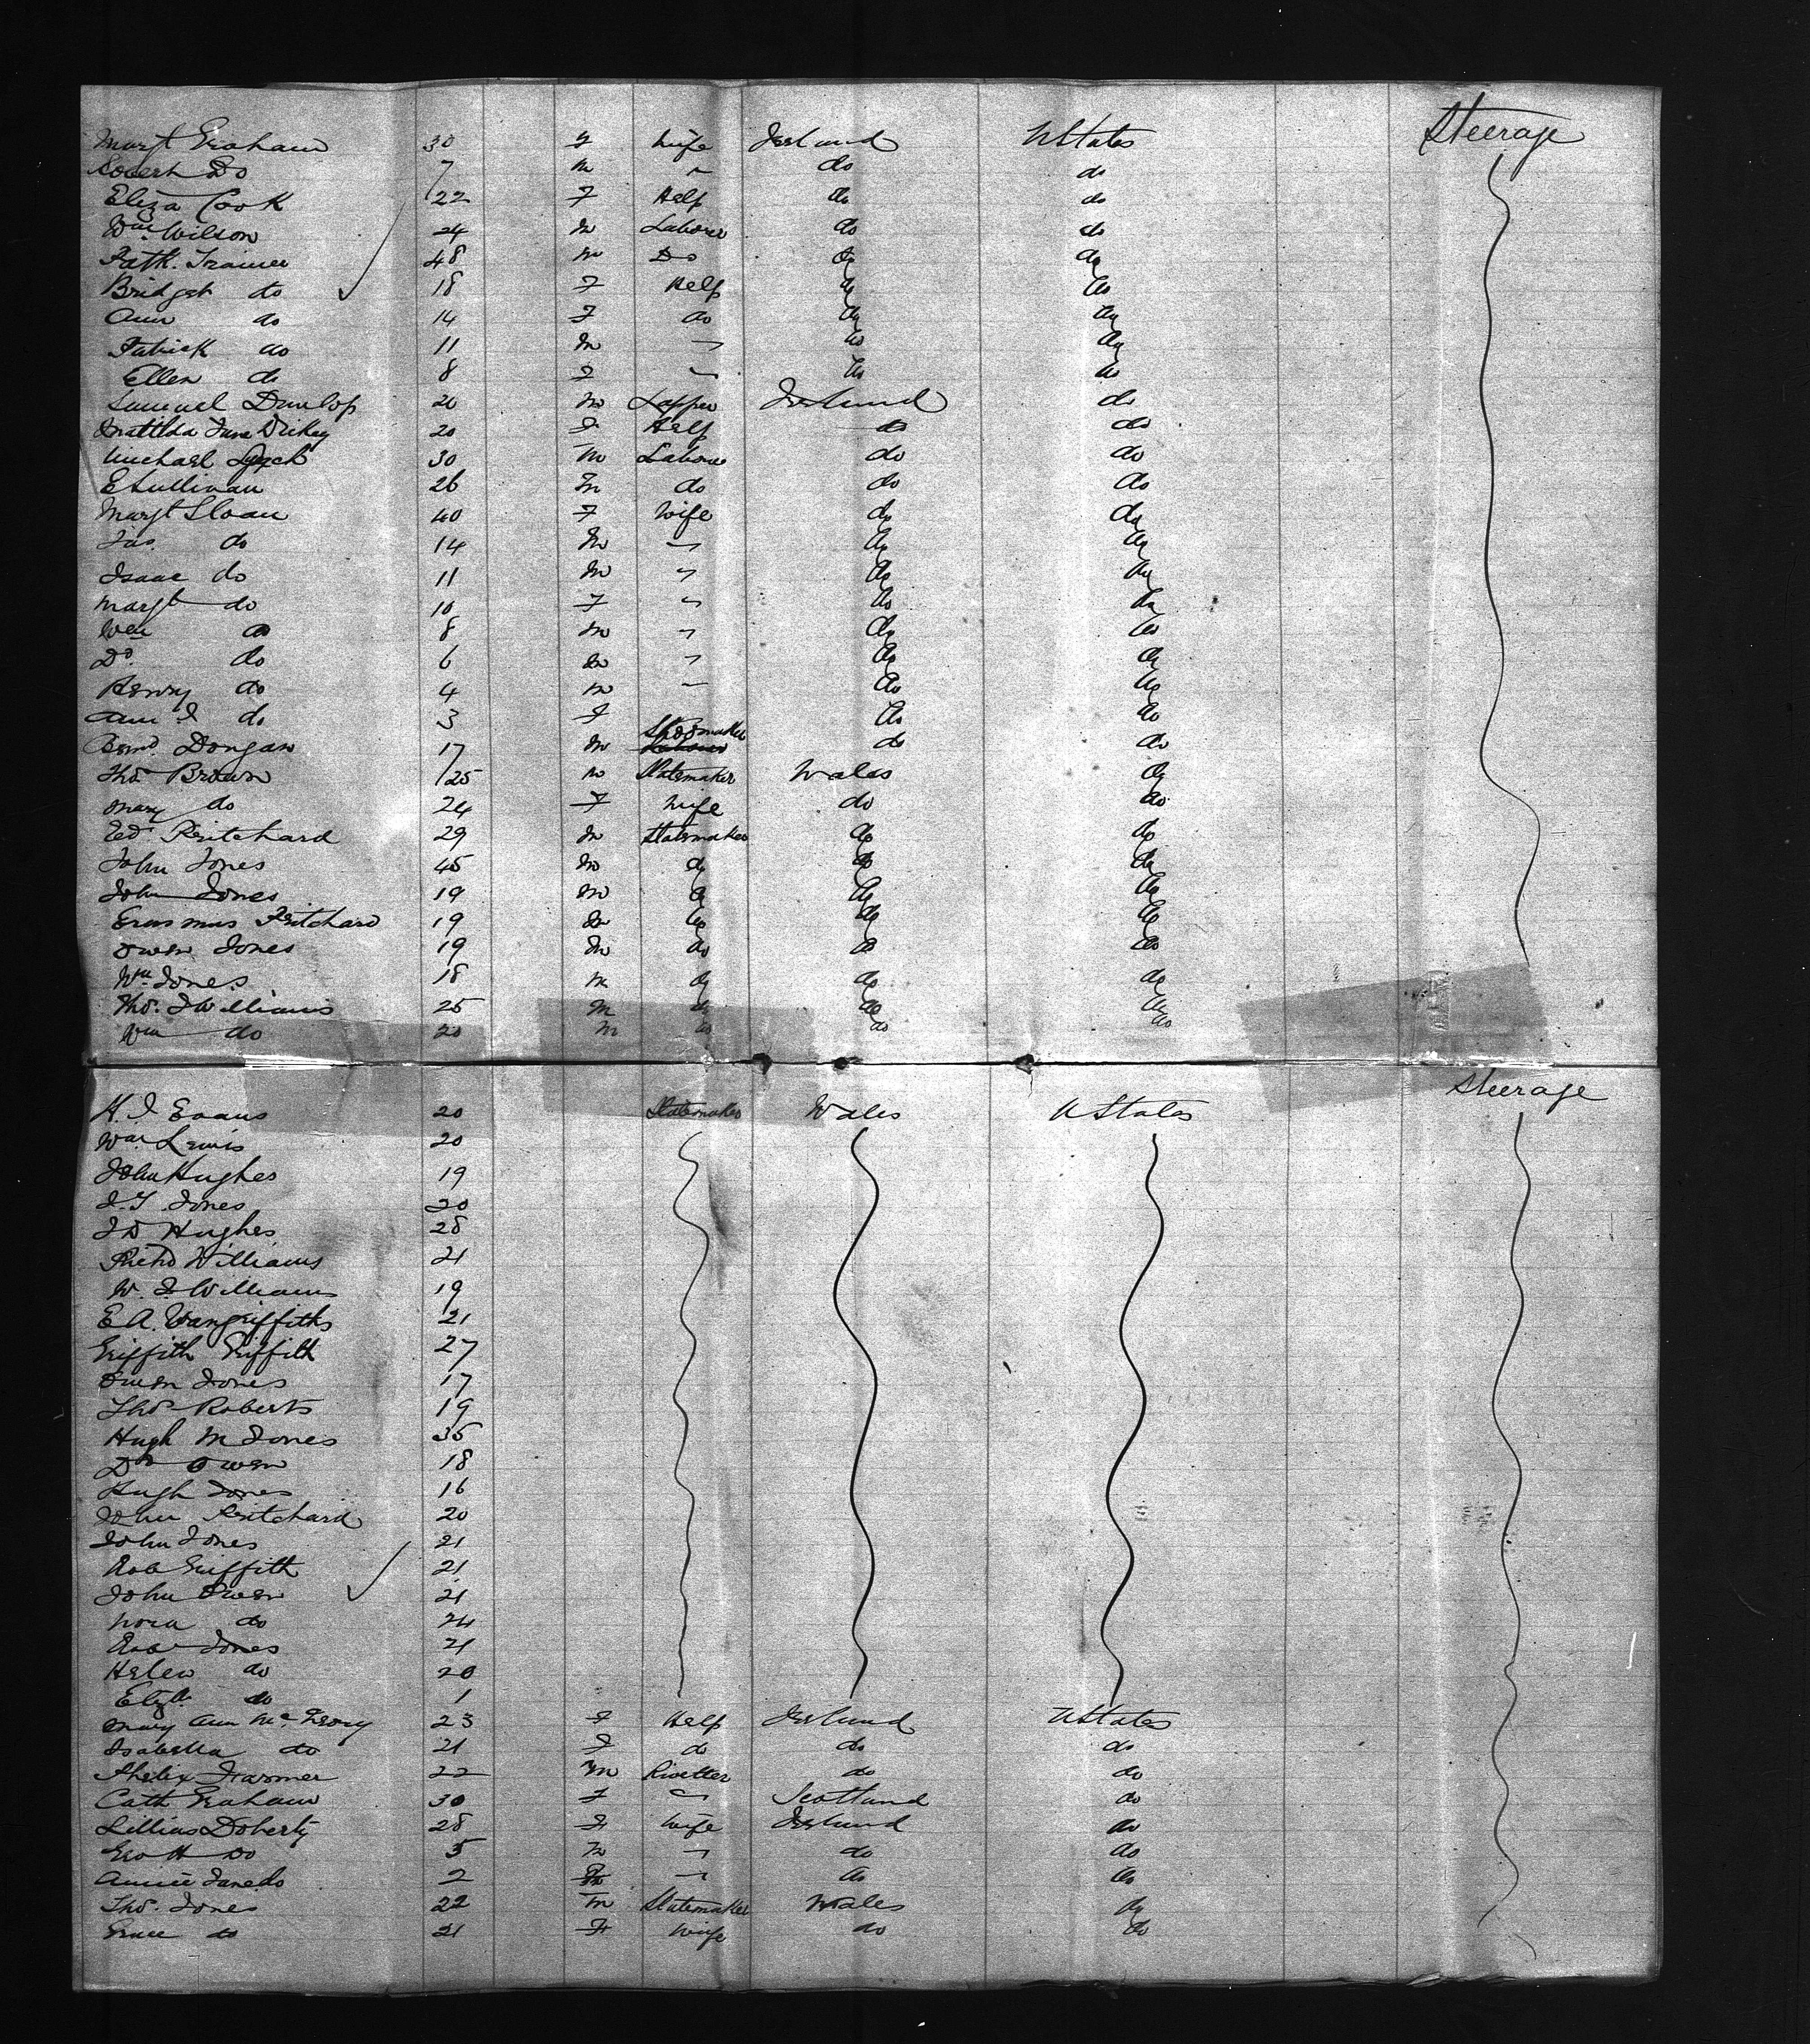 Margt Graham 30 F Wife Ireland UStates Steerage
Robert Do 7 M " do do
Eliza Cook 22 F Help do do
Wm Wilson 24 M Laborer do do
Patk. Trainer 48 M Do do do
Bridget do 18 F Help do do
Ann do 14 F do do do
Patrick do 11 M " do do
Ellen do 8 F " do do
Samuel Dunlop 20 M Lapper Ireland do
Matilda Jane Dickey 20 F Help do do
Michael Lynch 30 M Laborer do do
E Sullivan 26 M do do do
Margt Sloan 40 F Wife do do
Jas. do 14 M " do do
Isaac do 11 M " do do
Margt do 10 F " do do
Wm do 8 M " do do
Do. do 6 M " do do
Henry do 4 M " do do
Ann J do 3 F do do
Bernd Dongan 17 M Shoemaker do do
Thos Brown 25 M Slatemaker Wales do
Mary do 24 F Wife do do
Ed. Pritchard 29 M Slatemaker do do
John Jones 45 M do do do
John Jones 19 M do do do
Erasmus Pritchard 19 M do do do
Owen Jones 19 M do do do
Wm Jones 18 M do do do
Thos. J Williams 25 M do do do
Wm do 20 M do do do
Steerage
H. J Evans 20 Slatemaker Wales UStates
Wm Lewis 20
John Hughes 19
J. T. Jones 20
J D Hughes 28
Richd Williams 21
W. J Williams 19
E A. Vangriffiths 21
Griffith Griffith 27
Owen Jones 17
Thos Roberts 19
Hugh M Jones 35
Dd Owen 18
Hugh Jones 16
John Pritchard 20
John Jones 21
Rob Griffith 21
John Owen 21
Nora do 24
Robt Jones 21
Helen do 20
Elizth do 1
Mary Ann Mc 23 F Help Ireland UStates
Isabella do 21 F do do do
Phelix 22 M Rivetter do do
Cath Graham 30 F " Scotland do
Lillias Doherty 28 F Wife Ireland do
Geo H Do 5 M " do do
Annie Jane do 2 " do do
Thos. Jones 22 M Slatemaker Wales do
Grace do 21 F Wife do do